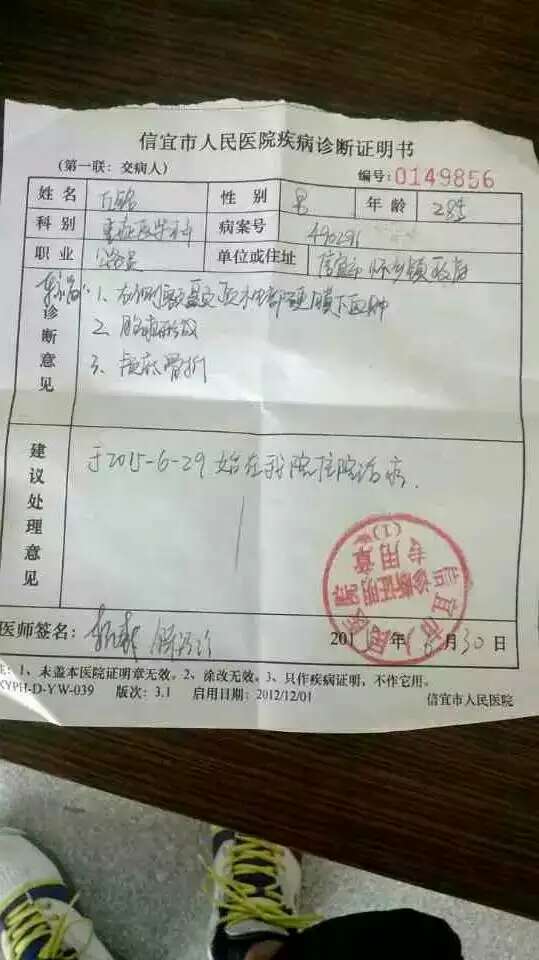 信宜市人民医院疾病诊断证明书
(第一联：交病人) 编号:0149856
姓名 性别 男 年龄 28岁
科别 重症医学科 病案号 490291
职业 公务员 单位或住址 信宜市怀乡镇政府
诊断意见
1、右侧额颞顶枕部硬膜下血肿
2、脑疝形成
3、颅底骨折
建议处理意见
于2015-6-29始在我院住院治疗.
信宜市人民医院
疾病诊断证明
专用章
(1)
医师签名: 201 年 6月30日
1、未盖本医院证明章无效。2、涂改无效。3、只作疾病证明，不作它用。
XYPH-D-YW-039 版次: 3.1 启用日期: 2012/12/01 信宜市人民医院